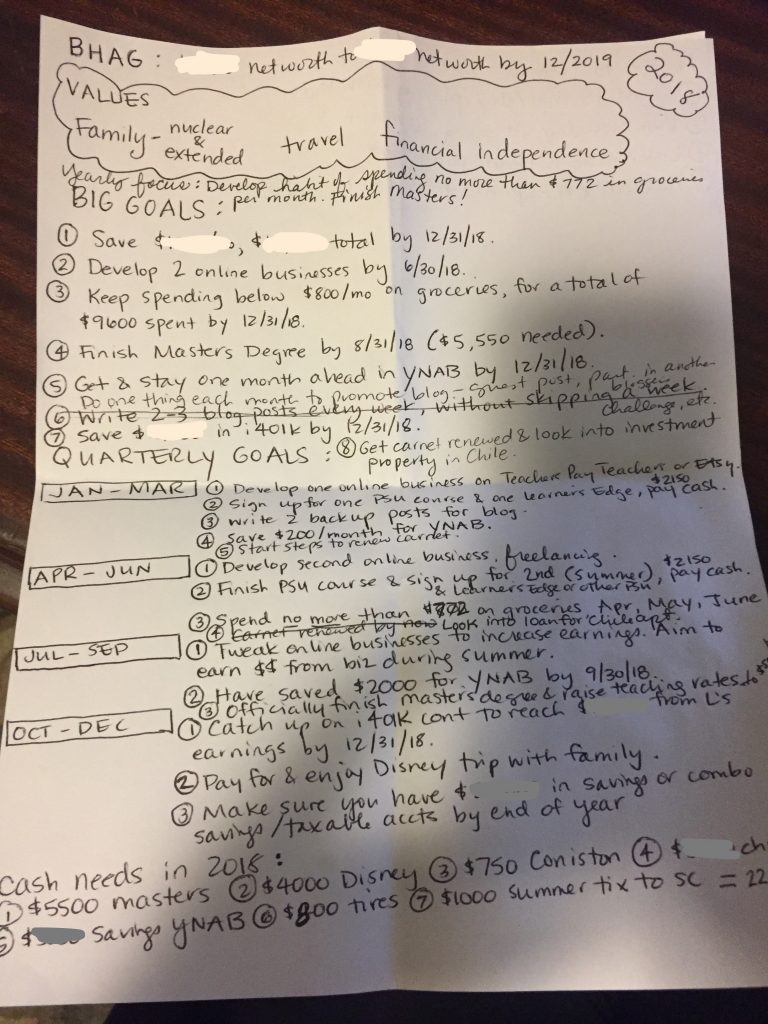 BHAG: networth to networth by 12/2019
2018
VALUES
Family - nuclear & extended travel financial independence
Yearly focus: Develop habit of spending no more than $772 in groceries
per month. Finish Masters!
BIG GOALS:
① Save $ , $ total by 12/31/18.
② Develop 2 online businesses by 6/30/18.
③ Keep spending below $800/mo on groceries, for a total of
$9600 spent by 12/31/18.
④ Finish Masters Degree by 8/31/18 ($5,550 needed).
⑤ Get & stay one month ahead in YNAB by 12/31/18.
Do one thing each month to promote blog - guest post, part. in another
blogger challenge, etc.
⑥ Write 2-3 blog posts every week, without skipping a week.
⑦ Save $ in i401k by 12/31/18.
⑧ Get carnet renewed & look into investment
property in Chile.
QUARTERLY GOALS:
JAN-MAR
① Develop one online business on Teachers Pay Teachers or Etsy.
② Sign up for one PSU course & one Learners Edge, $2150 pay cash.
③ Write 2 backup posts for blog.
④ Save $200/month for YNAB.
⑤ Start steps to renew carnet.
APR-JUN
① Develop second online business, freelancing.
② Finish PSU course & sign up for 2nd (summer), $2150 pay cash.
& Learners Edge or other PSU
③ Spend no more than $772 on groceries Apr, May, June
④ Carnet renewed by now Look into loan for Chile apt.
JUL-SEP
① Tweak online businesses to increase earnings. Aim to
earn $$ from biz during summer.
② Have saved $2000 for YNAB by 9/30/18.
③ Officially finish masters degree & raise teaching rates to
OCT-DEC
① Catch up on i401k cont to reach $ from L's
earnings by 12/31/18.
② Pay for & enjoy Disney trip with family.
③ Make sure you have $ in savings or combo
savings/taxable accts by end of year
Cash needs in 2018:
① $5500 masters ② $4000 Disney ③ $750 Coniston ④ $ ch
⑤ $ Savings YNAB ⑥ $800 tires ⑦ $1000 summer tix to SC = 22